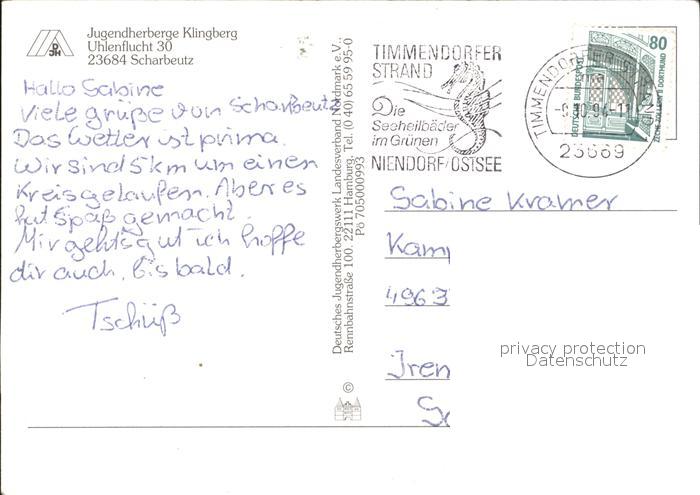 Jugendherberge Klingberg
Uhlenflucht 30
23684 Scharbeutz
Hallo Sabine
viele grüße von Scharbeutz
Das Wetter ist prima.
Wir sind 5 km um einen
Kreis gelaufen. Aber es
hat Spaß gemacht.
Mir gehts gut ich hoffe
dir auch. Bis bald.
Tschüß
Deutsches Jugendherbergswerk Landesverband Nordmark e.V.
Rennbahnstraße 100, 22111 Hamburg, Tel. (0 40) 65 59 95-0
Pö 705000993
©
DJH
TIMMENDORFER
STRAND
Die
Seeheilbäder
im Grünen
NIENDORF/OSTSEE
TIMMENDORFER
23669
80
DEUTSCHE BUNDESPOST
ZECHE ZOLLERN II DORTMUND
Sabine Kramer
Kam
4963
Iren
privacy protection
Datenschutz